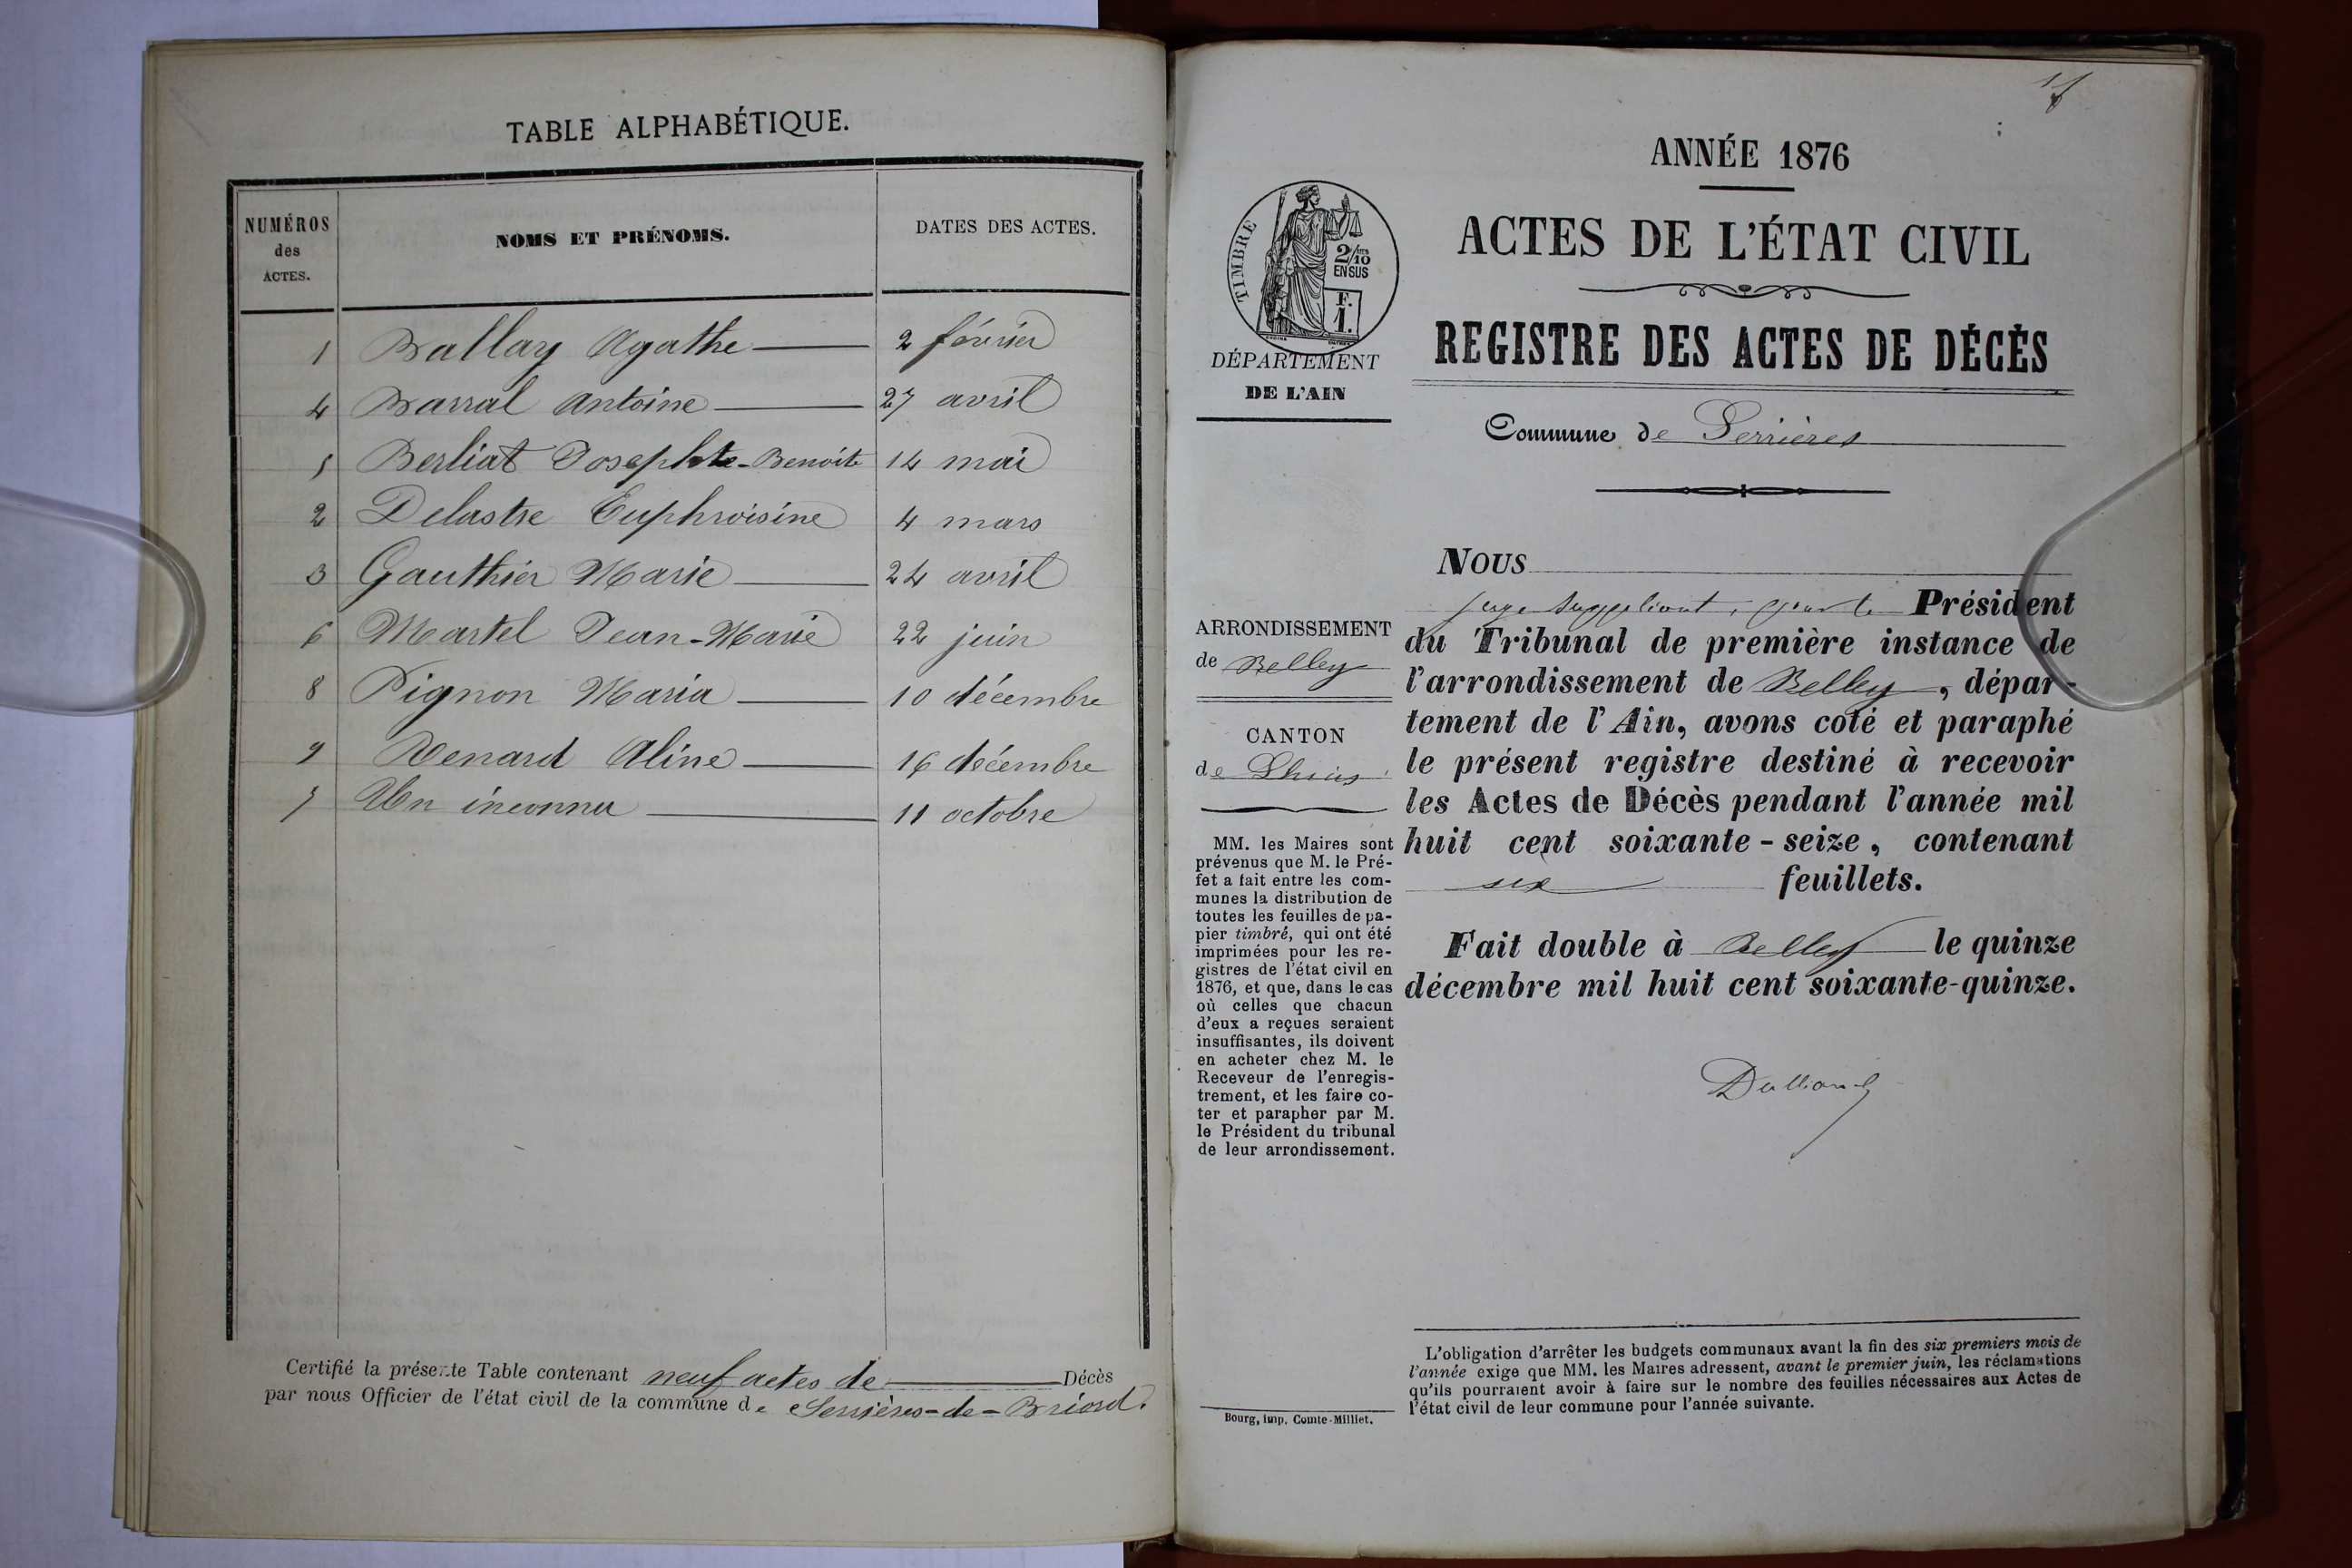 TABLE ALPHABÉTIQUE.
NUMÉROS
des
ACTES.
NOMS ET PRÉNOMS.
DATES DES ACTES.
1 Ballay Agathe 2 février
4 Barral Antoine 27 avril
5 Berliat Josephte-Benoite 14 mai
2 Delastre Euphroisine 4 mars
3 Gauthier Marie 24 avril
6 Martel Jean-Marie 22 juin
8 Pignon Maria 10 décembre
9 Renard Aline 16 décembre
7 Un inconnu 11 octobre
Certifié la présente Table contenant neuf actes de Décès
par nous Officier de l'état civil de la commune de Serrières-de-Briord.
ANNÉE 1876
ACTES DE L'ÉTAT CIVIL
REGISTRE DES ACTES DE DÉCÈS
Commune de Serrières
TIMBRE
2/10
EN SUS
F.
1.
DÉPARTEMENT
DE L'AIN
ARRONDISSEMENT
de Belley
CANTON
de Lhuis
MM. les Maires sont
prévenus que M. le Pré-
fet a fait entre les com-
munes la distribution de
toutes les feuilles de pa-
pier timbré, qui ont été
imprimées pour les re-
gistres de l'état civil en
1876, et que, dans le cas
où celles que chacun
d'eux a reçues seraient
insuffisantes, ils doivent
en acheter chez M. le
Receveur de l'enregis-
trement, et les faire co-
ter et parapher par M.
le Président du tribunal
de leur arrondissement.
Bourg, imp. Comte-Milliet.
NOUS
juge suppléant, pour le Président
du Tribunal de première instance de
l'arrondissement de Belley, dépar-
tement de l'Ain, avons coté et paraphé
le présent registre destiné à recevoir
les Actes de Décès pendant l'année mil
huit cent soixante-seize, contenant
six feuillets.
Fait double à Belley le quinze
décembre mil huit cent soixante-quinze.
L'obligation d'arrêter les budgets communaux avant la fin des six premiers mois de
l'année exige que MM. les Maires adressent, avant le premier juin, les réclamations
qu'ils pourraient avoir à faire sur le nombre des feuilles nécessaires aux Actes de
l'état civil de leur commune pour l'année suivante.